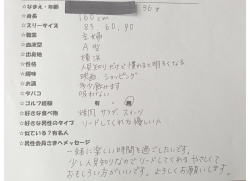 ☆なまえ・年齢 36才
☆身長 160cm
☆スリーサイズ 85 60 90
☆職業 主婦
☆血液型 A型
☆出身地 横浜
☆性格 人見知りだけど慣れると明るくなる
☆趣味 映画、ショッピング
☆お酒 多少飲みます
☆タバコ 吸わない
☆ゴルフ経験 有・無
☆好きな食べ物 焼肉 サラダ スイーツ
☆好きな男性のタイプ リードしてくれる優しい人
☆似ている?有名人
☆男性会員さまへメッセージ
一緒に楽しい時間を過ごしたいです。
少し人見知りなのでリードしてくれる やさしくて
おもしろい方がいいです。よろしくお願いします。